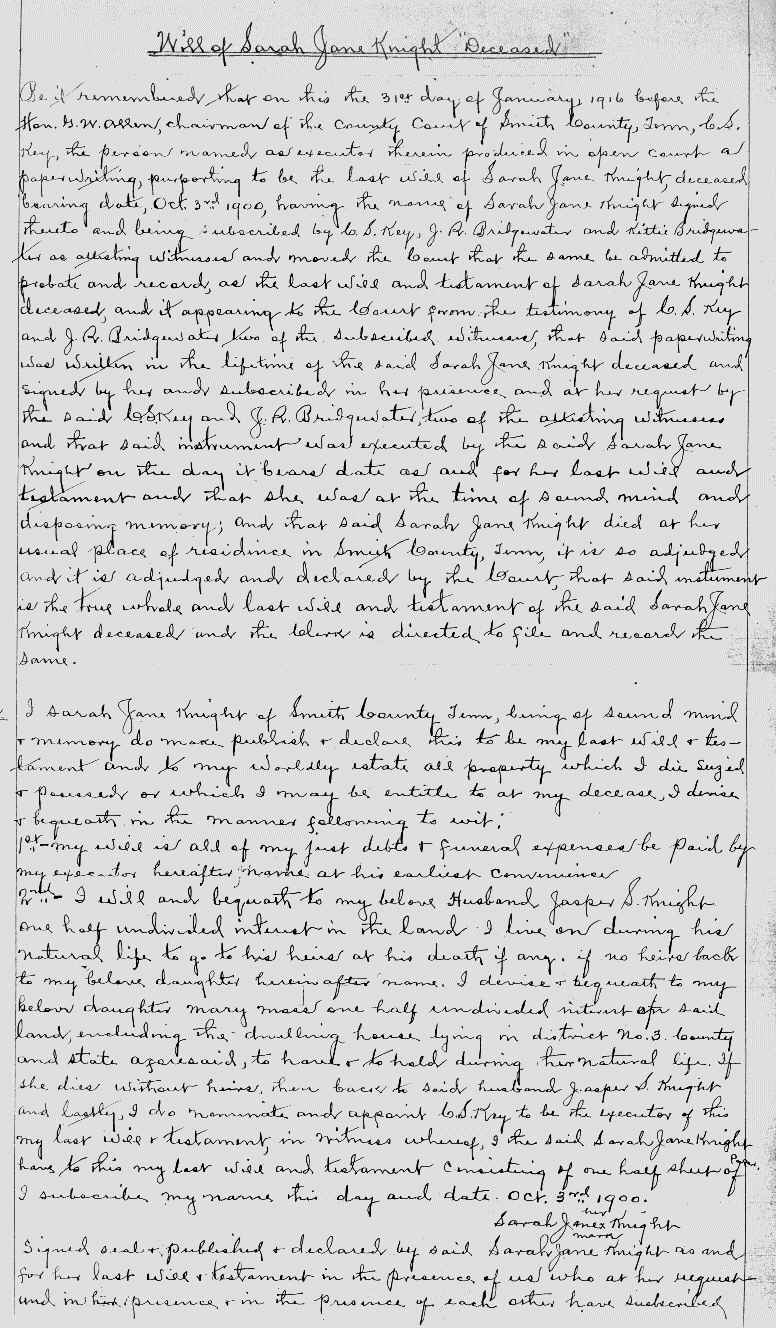 Will of Sarah Jane Knight "Deceased"
Be it remembered that on this the 31st day of January, 1916 before the
Hon. G. W. Allen, chairman of the County Court of Smith County, Tenn, C. S.
Key, the person named as executor therein produced in open court a
paperwriting, purporting to be the last will of Sarah Jane Knight, deceased
bearing date, Oct. 3rd 1900, having the name of Sarah Jane Knight signed
thereto and being subscribed by C. S. Key, J. R. Bridgewater and Kittie Bridgewa-
ter as attisting witnesses and moved the Court that the same be admitted to
probate and record, as the last will and testament of Sarah Jane Knight
deceased, and it appearing to the Court from the testimony of C. S. Key
and J. R. Bridgewater two of the subscribed witnesses, that said paperwriting
was written in the lifetime of the said Sarah Jane Knight deceased and
signed by her and subscribed in her presence and at her request by
the said C S Key and J. R. Bridgewater, two of the attisting witnesses
and that said instrument was executed by the said Sarah Jane
Knight on the day it bears date as and for her last will and
testament and that she was at the time of sound mind and
disposing memory; and that said Sarah Jane Knight died at her
usual place of residince in Smith County, Tenn, it is so adjudged
and it is adjudged and declared by the Court, that said instument
is the true whole and last will and testament of the said Sarah Jane
Knight deceased and the Clerk is directed to file and record the
same.
I Sarah Jane Knight of Smith County Tenn, being of sound mind
& memory do make publish & declare this to be my last will & tes-
tament and to my worldly estate all property which I die suzed
& posessed or which I may be entitle to at my decease, I devise
& bequeath in the manner following to wit;
1st - my will is all of my just debts & funeral expenses be paid by
my executor hereafter name at his earliest convinience
2nd - I will and bequath to my belove Husband Jasper S. Knight
one half undivided interest in the land I live on during his
natural life to go to his heirs at his death if any. if no heirs back
to my belove daughter hereinafter name. I devise & bequeath to my
belove daughter mary moss one half undivided interest of said
land, encluding the dwelling house lying in district No. 3. County
and state aforesaid, to have & to hold during her natural life. If
she dies without heirs, then back to said husband Jasper S. Knight
and lastly, I do nominate and appoint C. S. Key to be the executor of this
my last will & testament, in witness whereof, I the said Sarah Jane Knight
have to this my last will and testament consisting of one half sheet of Paper.
I subscribe my name this day and date. Oct. 3rd 1900.
Sarah Jane her x mark Knight
Signed seal & published & declared by said Sarah Jane Knight as and
for her last will & testament in the presence of us who at her request
and in her presence & in the presence of each other have subscribed